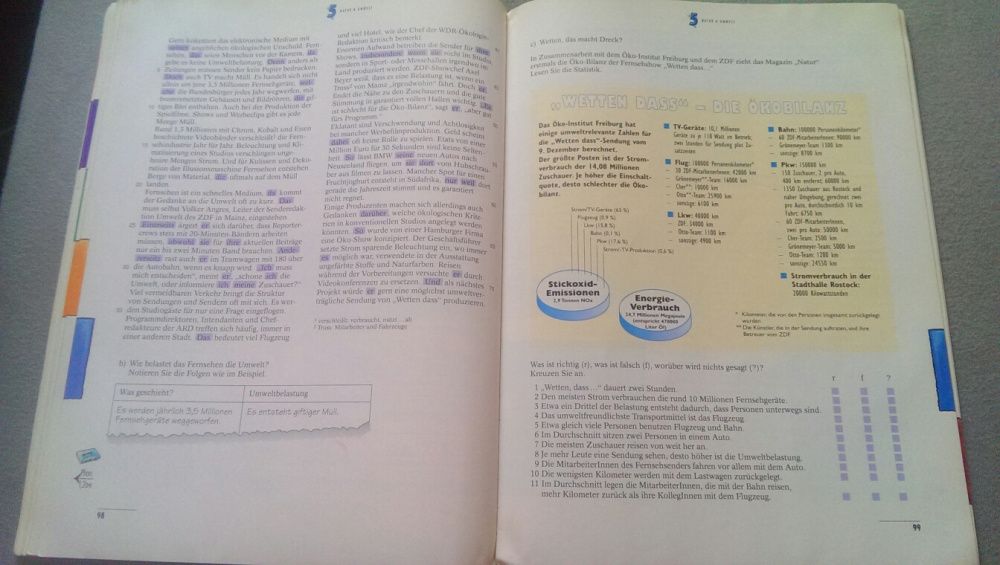 5 NATUR & UMWELT
Gern kokettiert das elektronische Medium mit
seiner angeblichen ökologischen Unschuld. Fern-
gebe es keine Umweltbelastung. Denn anders als
Zeitungen müssen Sender kein Papier bedrucken.
Doch auch TV macht Müll. Es handelt sich nicht
allein um jene 3,5 Millionen Fernsehgeräte, wel-
che die Bundesbürger jedes Jahr wegwerfen, mit
bromverseuchten Gehäusen und Bildröhren, die gif-
tiges Blei enthalten. Auch bei der Produktion der
Spielfilme, Shows und Werbeclips gibt es jede
Menge Müll.
Rund 1,5 Millionen mit Chrom, Kobalt und Eisen
beschichtete Videobänder verschleißt die Fern-
sehindustrie Jahr für Jahr. Beleuchtung und Kli-
matisierung eines Studios verschlingen unge-
heure Mengen Strom. Und für Kulissen und Deko-
ration der Illusionsmaschine Fernsehen entstehen
Berge von Material, die oftmals auf dem Müll
landen.
Fernsehen ist ein schnelles Medium, da kommt
der Gedanke an die Umwelt oft zu kurz. Das
muss selbst Volker Angres, Leiter der Senderedak-
tion Umwelt des ZDF in Mainz, eingestehen.
Einerseits ärgert er sich darüber, dass Reporter-
crews stets mit 20-Minuten-Bändern arbeiten
müssen, obwohl sie für ihre aktuellen Beiträge
nur ein bis zwei Minuten Band brauchen. Ande-
rerseits rast auch er im Teamwagen mit 180 über
die Autobahn, wenn es knapp wird. „Ich muss
mich entscheiden“, meint er, „schone ich die
Umwelt, oder informiere ich meine Zuschauer?“
Viel vermeidbaren Verkehr bringt die Struktur
von Sendungen und Sendern oft mit sich. Es wer-
den Studiogäste für nur eine Frage eingeflogen.
Programmdirektoren, Intendanten und Chef-
redakteure der ARD treffen sich häufig, immer in
einer anderen Stadt. Das bedeutet viel Flugzeug
und viel Hotel, wie der Chef der WDR-Ökologie-
Redaktion kritisch bemerkt.
Enormen Aufwand betreiben die Sender für ihre
Shows, insbesondere wenn sie nicht im Studio,
sondern in Sport- oder Messehallen irgendwo im
Land produziert werden. ZDF-Showchef Axel
Beyer weiß, dass es eine Belastung ist, wenn ein
Tross² von Mainz „irgendwohin“ fährt. Doch er
findet die Nähe zu den Zuschauern und die gute
Stimmung in garantiert vollen Hallen wichtig. „Da
ist schlecht für die Öko-Bilanz“, sagt er, „aber gut
fürs Programm.“
Eklatant sind Verschwendung und Achtlosigkeit
bei mancher Werbefilmproduktion. Geld scheint
dabei oft keine Rolle zu spielen. Etats von einer
Million Euro für 30 Sekunden sind keine Selten-
heit. So lässt BMW seine neuen Autos nach
Neuseeland fliegen, um sie dort vom Hubschrau-
ber aus filmen zu lassen. Mancher Spot für einen
Fruchtjoghurt entsteht in Südafrika, nur weil dort
gerade die Jahreszeit stimmt und es garantiert
nicht regnet.
Einige Produzenten machen sich allerdings auch
Gedanken darüber, welche ökologischen Krite-
rien in konventionellen Studios angelegt werden
können. So wurde von einer Hamburger Firma
eine Öko-Show konzipiert. Der Geschäftsführer
setzte Strom sparende Beleuchtung ein, wo immer
es möglich war, verwendete in der Ausstattung
ungefärbte Stoffe und Naturfarben. Reisen
während der Vorbereitungen versuchte er durch
Videokonferenzen zu ersetzen. Und als nächstes
Projekt würde er gern eine möglichst umweltver-
trägliche Sendung von „Wetten dass“ produzieren.
¹ verschleißt: verbraucht, nützt ...ab
² Tross: Mitarbeiter und Fahrzeuge
b) Wie belastet das Fernsehen die Umwelt?
Notieren Sie die Folgen wie im Beispiel.
Was geschieht? Umweltbelastung
Es werden jährlich 3,5 Millionen Es entsteht giftiger Müll.
Fernsehgeräte weggeworfen.
98
5 NATUR & UMWELT
c) Wetten, das macht Dreck?
In Zusammenarbeit mit dem Öko-Institut Freiburg und dem ZDF zieht das Magazin „Natur“
erstmals die Öko-Bilanz der Fernsehshow „Wetten dass...“
Lesen Sie die Statistik.
„WETTEN DASS“ – DIE ÖKOBILANZ
Das Öko-Institut Freiburg hat
einige umweltrelevante Zahlen für
die „Wetten dass“-Sendung vom
9. Dezember berechnet.
Der größte Posten ist der Strom-
verbrauch der 14,08 Millionen
Zuschauer. Je höher die Einschalt-
quote, desto schlechter die Öko-
bilanz.
Strom/TV-Geräte (65 %)
Flugzeug (0,9 %)
Lkw (15,8 %)
Bahn (0,1 %)
Pkw (17,6 %)
Strom/TV-Produktion (0,6 %)
Stickoxid-
Emissionen
2,9 Tonnen NOx
Energie-
Verbrauch
24,7 Millionen Megajoule
(entspricht 670000
Liter Öl)
TV-Geräte: 10,1 Millionen
Geräte zu je 110 Watt in Betrieb;
zwei Stunden Sendung plus Zu-
satzzeiten
Flug: 100000 Personenkilometer*
– 30 ZDF-MitarbeiterInnen: 42000 km
– Grönemeyer**-Team: 16000 km
– Cher**: 10000 km
– Otto**-Team: 25900 km
– sonstige: 6100 km
Lkw: 40000 km
– ZDF: 34000 km
– Otto-Team: 1100 km
– sonstige: 4900 km
Bahn: 100000 Personenkilometer*
– 60 ZDF-MitarbeiterInnen: 90000 km
– Grönemeyer-Team: 1300 km
– sonstige: 8700 km
Pkw: 150000 km
– 150 Zuschauer, 2 pro Auto,
400 km entfernt: 60000 km
– 1350 Zuschauer aus Rostock und
naher Umgebung, gerechnet zwei
pro Auto, durchschnittlich 10 km
Fahrt: 6750 km
– 60 ZDF-MitarbeiterInnen,
zwei pro Auto: 50000 km
– Cher-Team: 2500 km
– Grönemeyer-Team: 5000 km
– Otto-Team: 1200 km
– sonstige: 24550 km
Stromverbrauch in der
Stadthalle Rostock:
20000 Kilowattstunden
* Kilometer, die von den Personen insgesamt zurückgelegt
wurden
** Die Künstler, die in der Sendung auftraten, und ihre
Betreuer vom ZDF
Was ist richtig (r), was ist falsch (f), worüber wird nichts gesagt (?)?
Kreuzen Sie an.
r f ?
1 „Wetten, dass...“ dauert zwei Stunden.
2 Den meisten Strom verbrauchen die rund 10 Millionen Fernsehgeräte.
3 Etwa ein Drittel der Belastung entsteht dadurch, dass Personen unterwegs sind.
4 Das umweltfreundlichste Transportmittel ist das Flugzeug.
5 Etwa gleich viele Personen benutzen Flugzeug und Bahn.
6 Im Durchschnitt sitzen zwei Personen in einem Auto.
7 Die meisten Zuschauer reisen von weit her an.
8 Je mehr Leute eine Sendung sehen, desto höher ist die Umweltbelastung.
9 Die MitarbeiterInnen des Fernsehsenders fahren vor allem mit dem Auto.
10 Die wenigsten Kilometer werden mit dem Lastwagen zurückgelegt.
11 Im Durchschnitt legen die MitarbeiterInnen, die mit der Bahn reisen,
mehr Kilometer zurück als ihre KollegInnen mit dem Flugzeug.
99